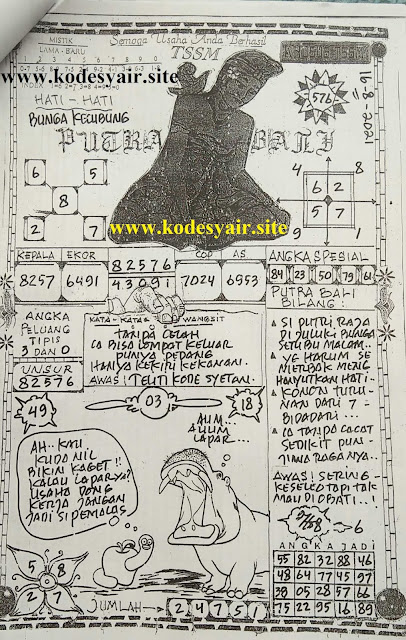 Semoga Usaha Anda Berhasil
MISTIK
LAMA - BARU
TSSM
www.kodesyair.site
HATI - HATI
BUNGA KECUBUNG
576
16-8-2021
PUTRA BALI
6 5
8
2 7
4 8
6 2
5 7
9 1
www.kodesyair.site
KEPALA EKOR
8257 6491
82576
43091
COP AS
7024 6953
ANGKA SPESIAL
84 23 50 79 61
ANGKA
PELUANG
TIPIS
3 DAN 0
UNSUR
82576
KATA-KATA WANGSIT
TANPA CELAH
CA BISA LOMPAT KELUAR
PUNYA PEDANG
HANYA KEKIRI KEKANAN.
AWAS! TELITI KODE SYETAN.
PUTRA BALI
BILANG :
SI PUTRI RAJA
DI JULUKI BUNGA
SERIBU MALAM.
YG HARUM SE
MERBAK MENG
HANYUTKAN HATI.
KONON TURU-
NAN DARI 7 =
BIDADARI ...
IA TANPA CACAT
SEDIKIT PUN =
JIWA RAGANYA..
AWAS! SERING
KESELEO TAPI TAK
MAU DI OBATI..!
49
03
18
AUM...
AUUM
LAPAR...
AH.. KAU
KUDA NIL
BIKIN KAGET!!
KALAU LAPAR YA?
USAHA DONG
KERJA JANGAN
JADI SI PEMALAS
6
5 8
2 7
JUMLAH
24751
ANGKA JADI
55 82 32 88 46
48 64 77 45 97
38 05 28 57 89
75 22 95 16 89